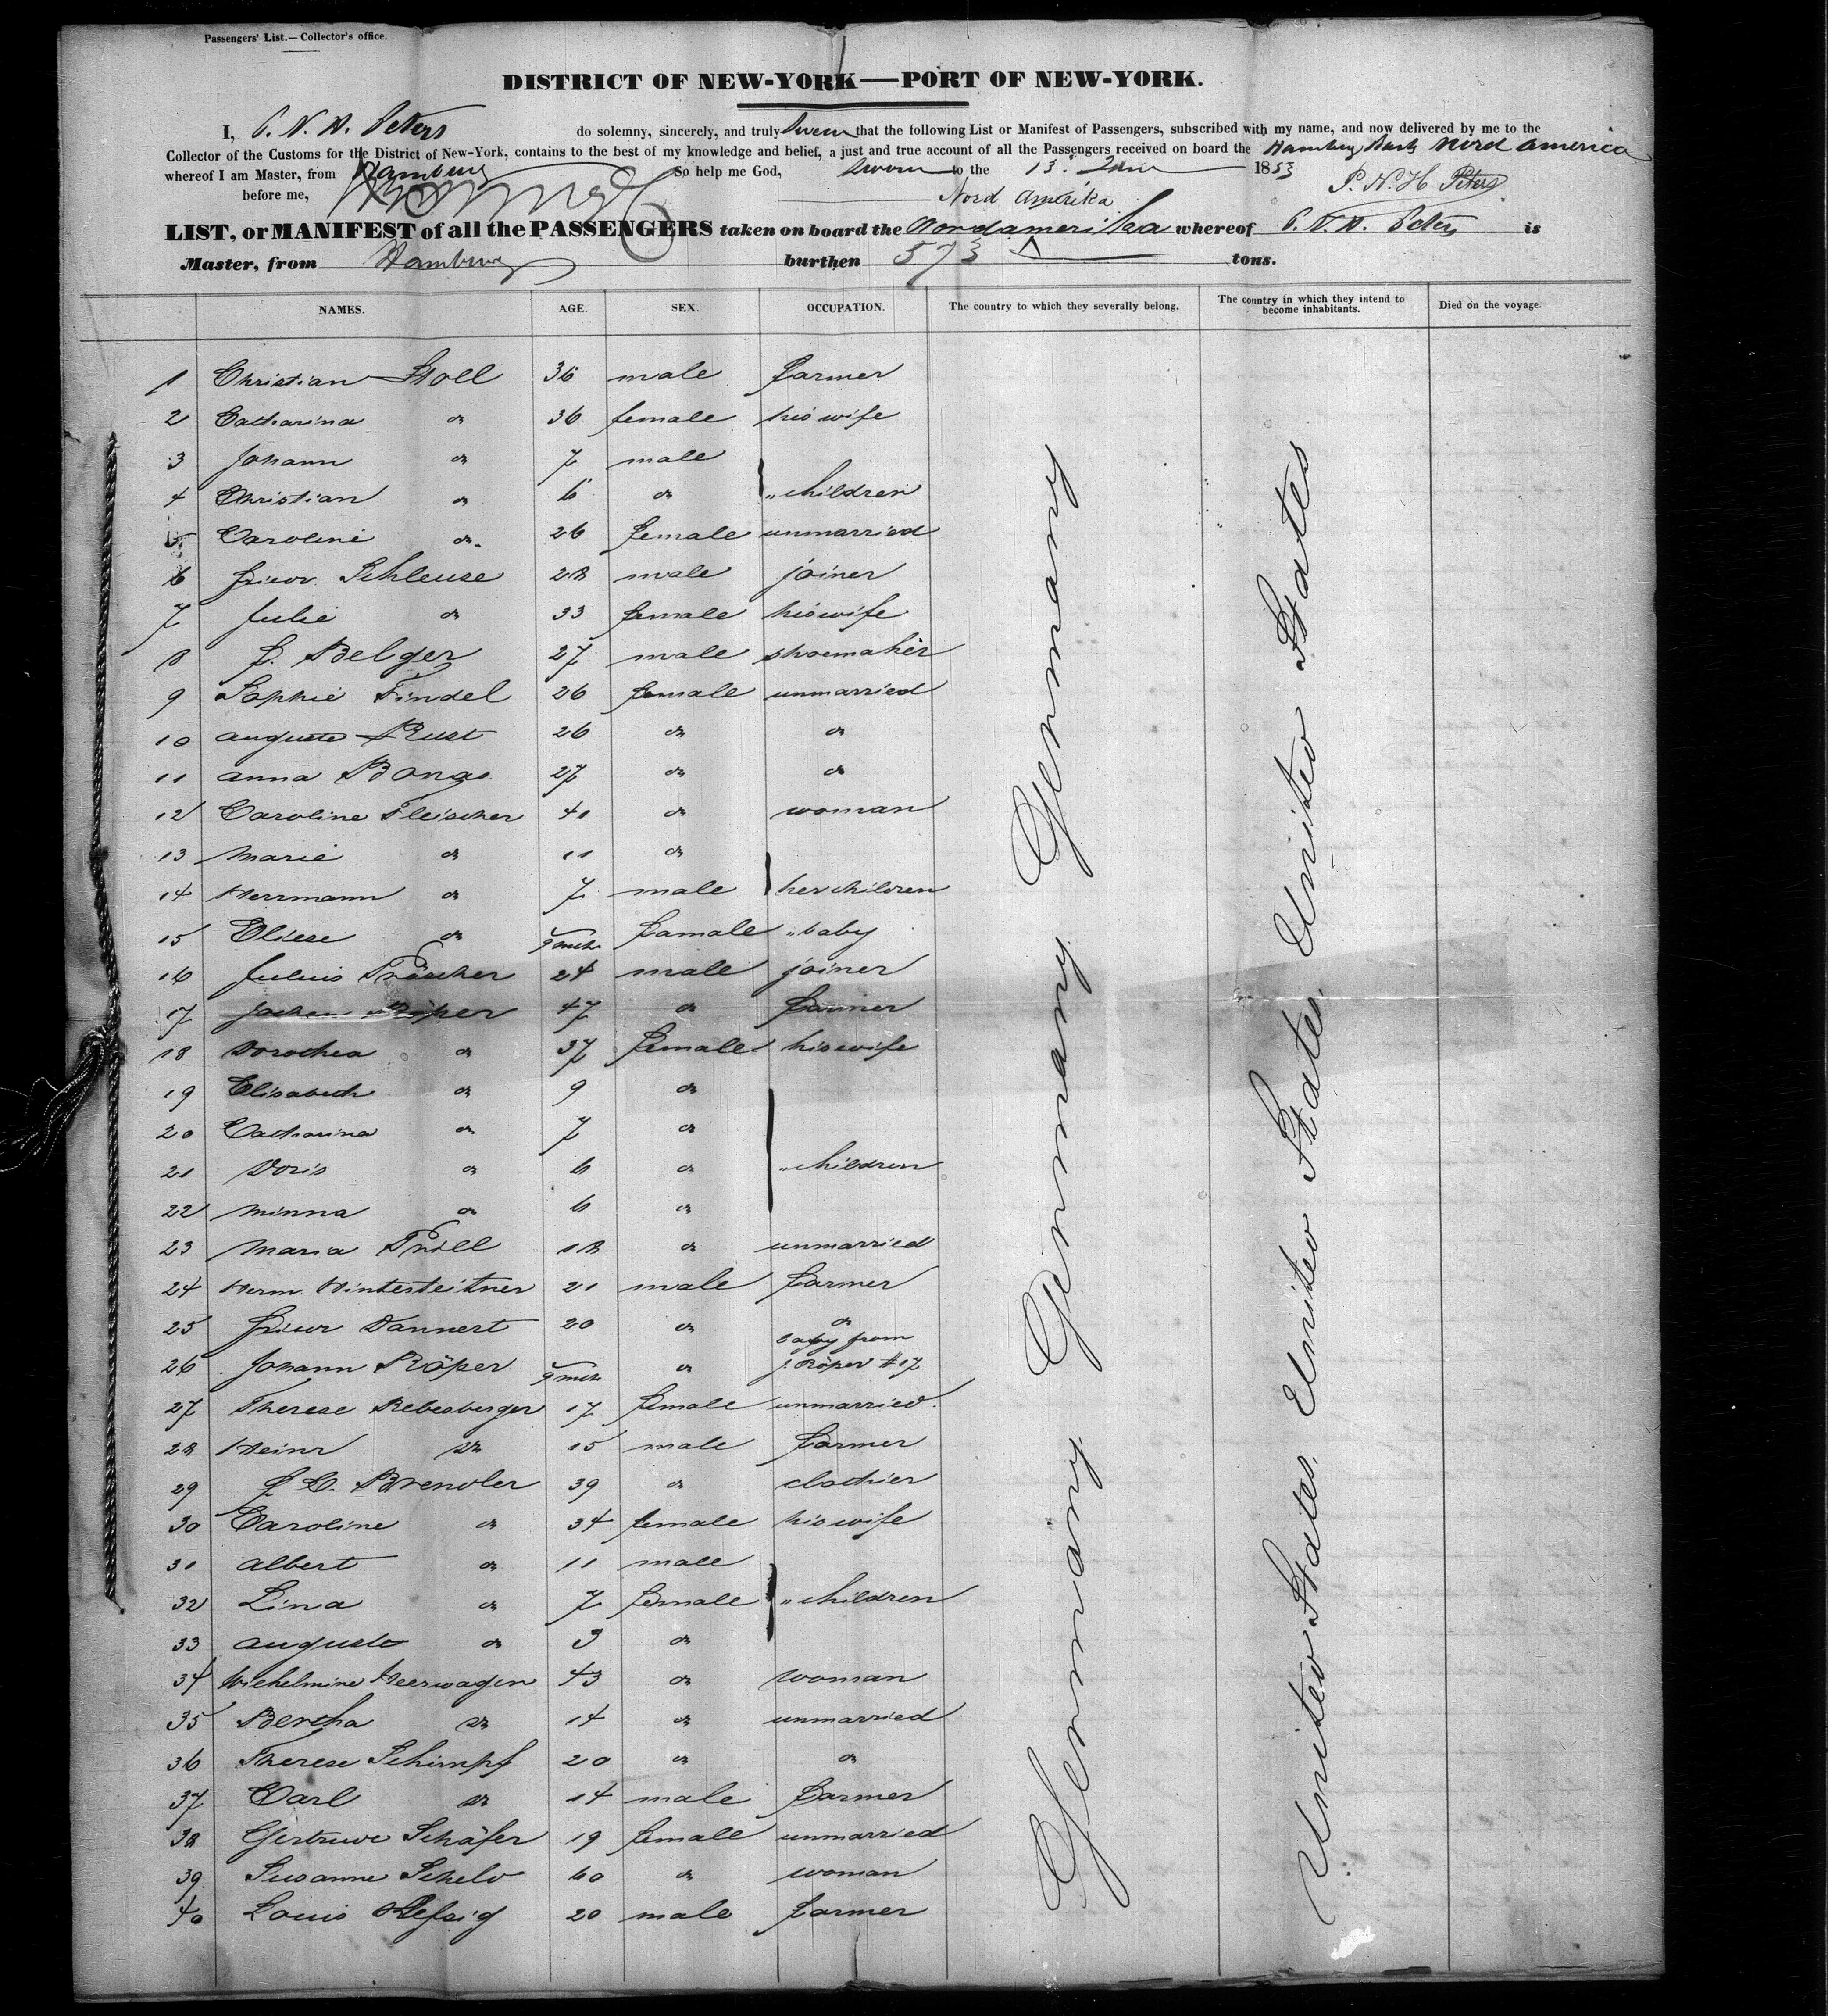 Passengers' List.—Collector's office.
DISTRICT OF NEW-YORK—PORT OF NEW-YORK.
I, P. N. H. Peters do solemny, sincerely, and truly swear that the following List or Manifest of Passengers, subscribed with my name, and now delivered by me to the
Collector of the Customs for the District of New-York, contains to the best of my knowledge and belief, a just and true account of all the Passengers received on board the Hamburg Bark Nord America
whereof I am Master, from Hamburg So help me God, sworn to the 13. June 1853 P. N. H. Peters
before me,
Nord Amerika
LIST, or MANIFEST of all the PASSENGERS taken on board the Nordamerika whereof P. N. H. Peters is
Master, from Hamburg burthen 573 tons.
NAMES. AGE. SEX. OCCUPATION. The country to which they severally belong. The country in which they intend to become inhabitants. Died on the voyage.
1 Christian Stoll 36 male farmer
2 Catharina do 36 female his wife
3 Johann do 7 male
4 Christian do 6 do " children
5 Caroline do. 26 female unmarried
6 Friedr. Schleuse 28 male joiner
7 Julie do 33 female his wife
8 F. Belger 27 male shoemaker
9 Sophie Findel 26 female unmarried
10 Auguste Rust 26 do do
11 Anna Bongs 27 do do
12 Caroline Fleischer 41 do woman
13 Marie do 11 do
14 Herrmann do 7 male her children
15 Eliese do 9 mth famale " baby
16 Julius Fröscher 24 male joiner
17 Jochen Röper 47 do farmer
18 Dorothea do 37 female his wife
19 Elisabeth do 9 do
20 Catharina do 7 do
21 Doris do 6 do " children
22 Minna do 6 do
23 Maria Prill 18 do unmarried
24 Herm. Hintersteitner 21 male farmer
25 Friedr Dannert 20 do do
26 Johann Röper 9 mth do baby from J. Röper #17
27 Therese Rebesberger 17 female unmarried.
28 Heinr do 15 male farmer
29 J. C. Brendler 39 do clothier
30 Caroline do 34 female his wife
31 Albert do 11 male
32 Lina do 7 female " children
33 Auguste do 3 do
34 Wilhelmine Heerwagen 43 do woman
35 Bertha do 14 do unmarried
36 Therese Schimpf 20 do do
37 Carl do 14 male farmer
38 Gertrude Schäfer 19 female unmarried
39 Susanne Scheld 60 do woman
40 Louis Hefsig 20 male farmer
Germany Germany Germany Germany
United States, United States, United States, United States